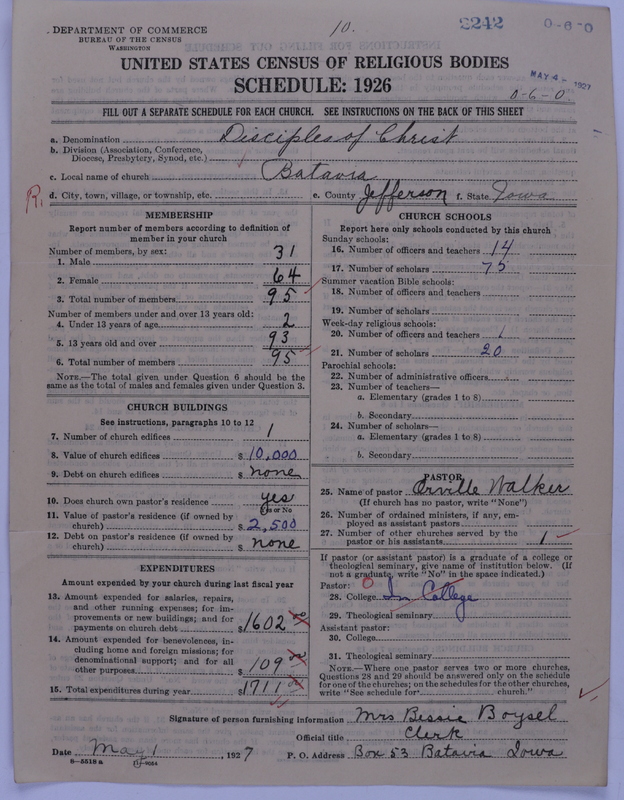 DEPARTMENT OF COMMERCE
BUREAU OF THE CENSUS
WASHINGTON
10.
2242
0-6-0
UNITED STATES CENSUS OF RELIGIOUS BODIES
SCHEDULE: 1926
MAY 4 - 1927
0-6-0
FILL OUT A SEPARATE SCHEDULE FOR EACH CHURCH. SEE INSTRUCTIONS ON THE BACK OF THIS SHEET
a. Denomination Disciples of Christ
b. Division (Association, Conference, Diocese, Presbytery, Synod, etc.)
c. Local name of church Batavia
R. d. City, town, village, or township, etc. e. County Jefferson f. State Iowa
MEMBERSHIP
Report number of members according to definition of
member in your church
Number of members, by sex:
1. Male 31
2. Female 64
3. Total number of members 95
Number of members under and over 13 years old:
4. Under 13 years of age 2
5. 13 years old and over 93
6. Total number of members 95
NOTE.—The total given under Question 6 should be
same as the total of males and females given under Question 3.
CHURCH BUILDINGS
See instructions, paragraphs 10 to 12
7. Number of church edifices 1
8. Value of church edifices $ 10,000
9. Debt on church edifices $ none
10. Does church own pastor's residence yes
Yes or No
11. Value of pastor's residence (if owned by
church) $ 2,500
12. Debt on pastor's residence (if owned by
church) $ none
EXPENDITURES
Amount expended by your church during last fiscal year
13. Amount expended for salaries, repairs,
and other running expenses; for im-
provements or new buildings; and for
payments on church debt $ 1602 00
14. Amount expended for benevolences, in-
cluding home and foreign missions; for
denominational support; and for all
other purposes $ 109 00
15. Total expenditures during year $ 1711 00
CHURCH SCHOOLS
Report here only schools conducted by this church
Sunday schools:
16. Number of officers and teachers 14
17. Number of scholars 75
Summer vacation Bible schools:
18. Number of officers and teachers
19. Number of scholars
Week-day religious schools:
20. Number of officers and teachers 1
21. Number of scholars 20
Parochial schools:
22. Number of administrative officers
23. Number of teachers—
a. Elementary (grades 1 to 8)
b. Secondary
24. Number of scholars—
a. Elementary (grades 1 to 8)
b. Secondary
PASTOR
25. Name of pastor Orville Walker
(If church has no pastor, write "None")
26. Number of ordained ministers, if any, em-
ployed as assistant pastors
27. Number of other churches served by the
pastor or his assistants 1
If pastor (or assistant pastor) is a graduate of a college or
theological seminary, give name of institution below. (If
not a graduate, write "No" in the space indicated.)
Pastor: 0
28. College In College
29. Theological seminary
Assistant pastor:
30. College
31. Theological seminary
NOTE.—Where one pastor serves two or more churches,
Questions 28 and 29 should be answered only on the schedule
for one of the churches; on the schedules for the other churches,
write "See schedule for church."
Signature of person furnishing information Mrs Bessie Boysel
Official title Clerk
Date May 1, 1927 P. O. Address Box 53 Batavia Iowa
8-5518 a 11-9084